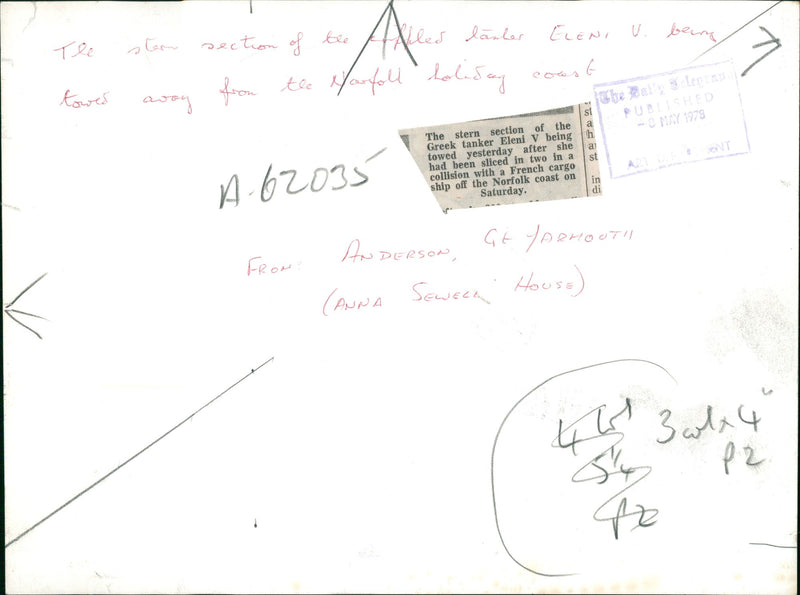 The stern section of the crippled tanker ELENI V. being
towed away from the Norfolk holiday coast
The Daily Telegraph
PUBLISHED
-8 MAY 1978
ART DEPARTMENT
The stern section of the
Greek tanker Eleni V being
towed yesterday after she
had been sliced in two in a
collision with a French cargo
ship off the Norfolk coast on
Saturday.
st
a
h
a
st
in
di
A-62035
FROM: ANDERSON, GT YARMOUTH
(ANNA SEWELL HOUSE)
3 col x 4"
p2